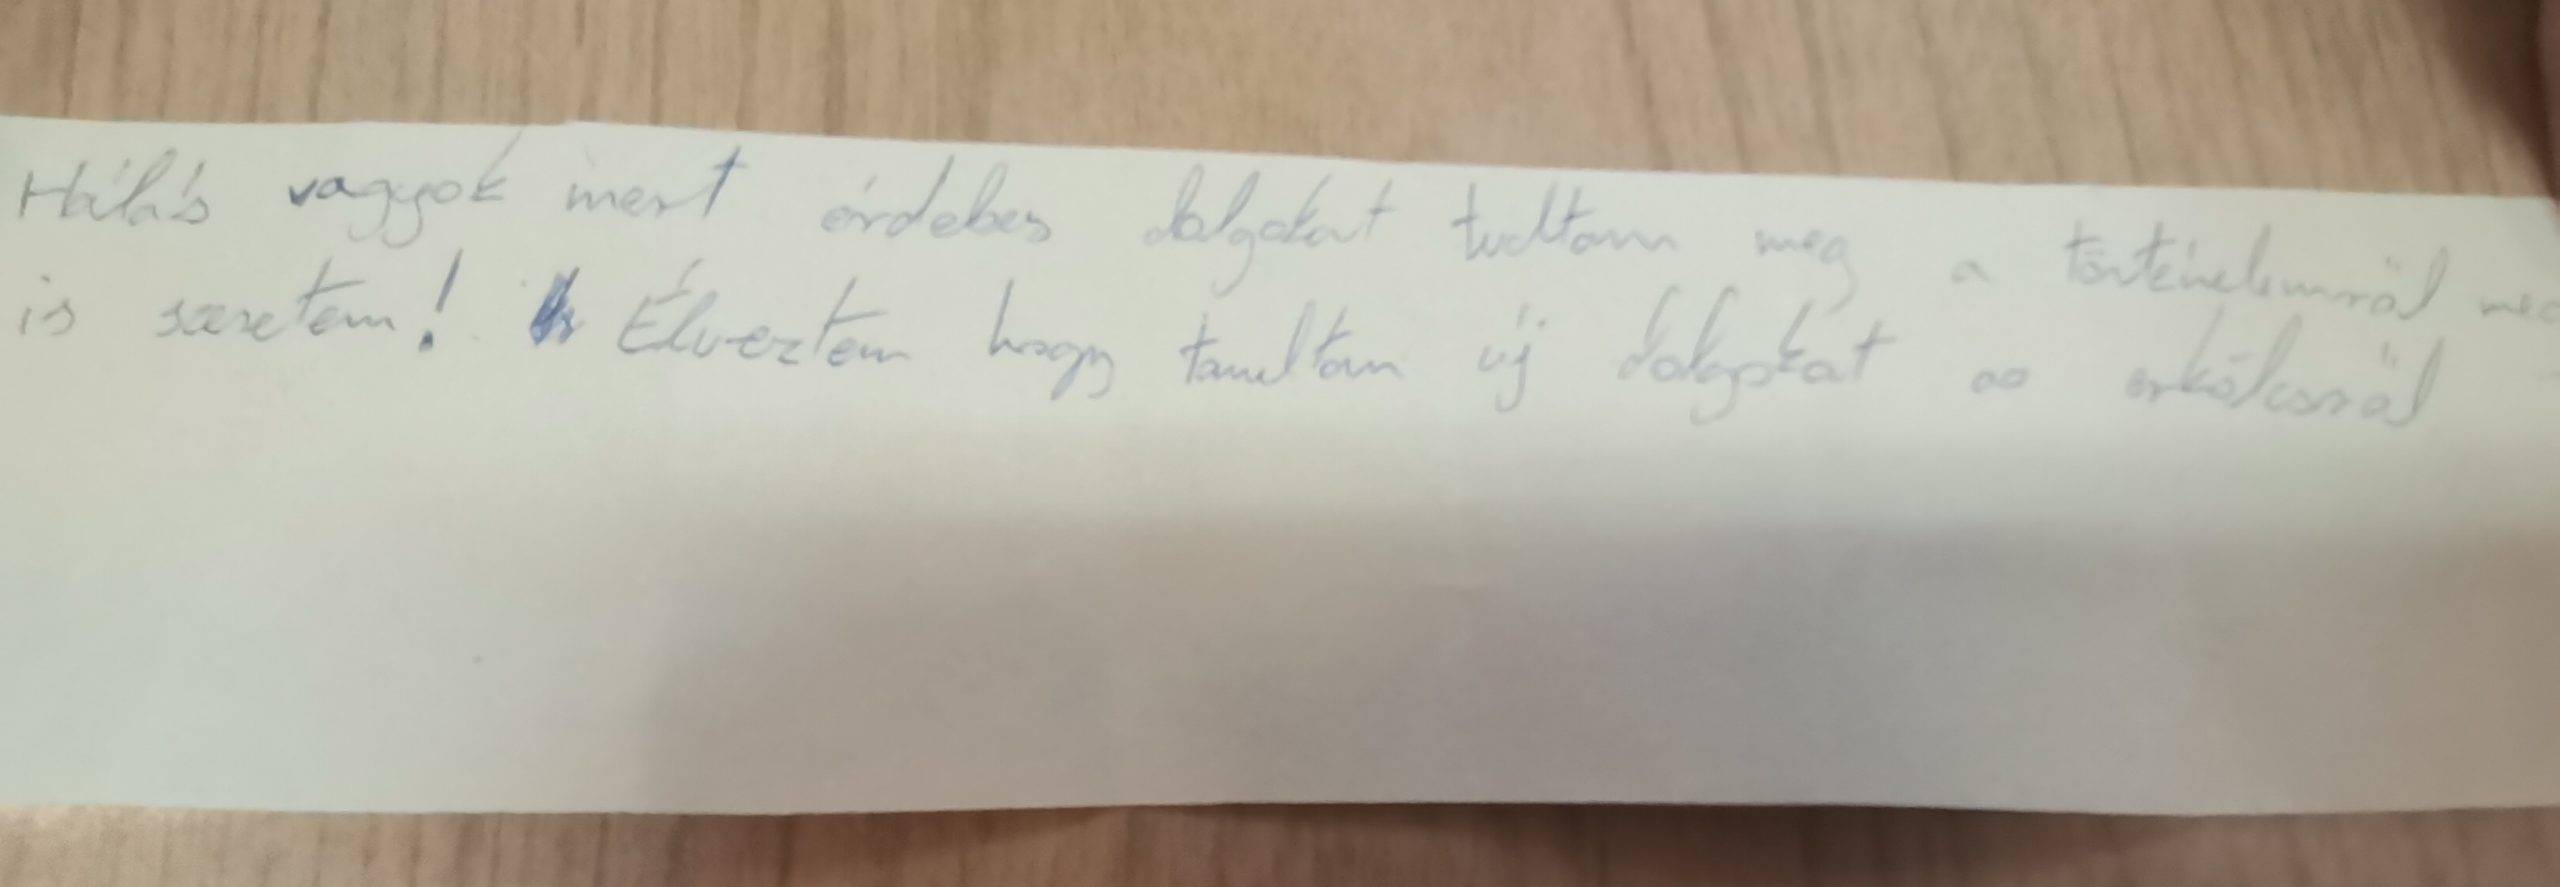 Hálás vagyok mert érdekes dolgokat tudtam meg a történelemröl
is szeretem! Élveztem hogy tanultam új dolgokat az erkölcsröl